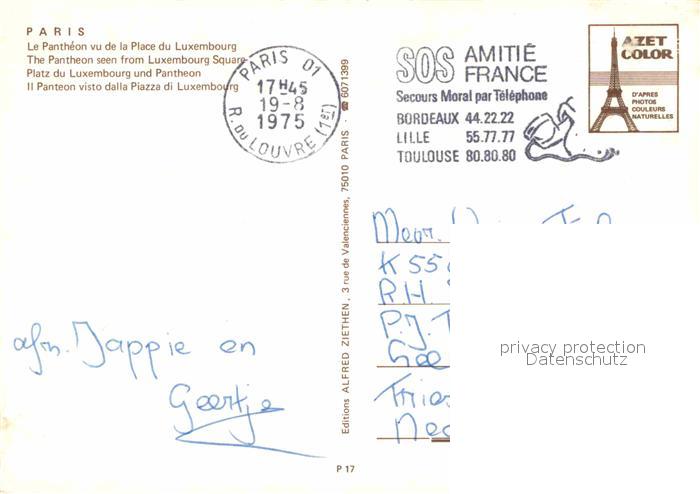 PARIS
Le Panthéon vu de la Place du Luxembourg
The Pantheon seen from Luxembourg Square
Platz du Luxembourg und Pantheon
Il Panteon visto dalla Piazza di Luxembourg
PARIS 01
17H45
19-8
1975
R. DU LOUVRE (1er)
SOS AMITIÉ
FRANCE
Secours Moral par Téléphone
BORDEAUX 44.22.22
LILLE 55.77.77
TOULOUSE 80.80.80
AZET
COLOR
D'APRES
PHOTOS
COULEURS
NATURELLES
Editions ALFRED ZIETHEN, 3 rue de Valenciennes, 75010 PARIS - ☎ 6071399
afz. Jappie en
Geertje
K 55
RH
P.J.T
privacy protection
Datenschutz
P 17